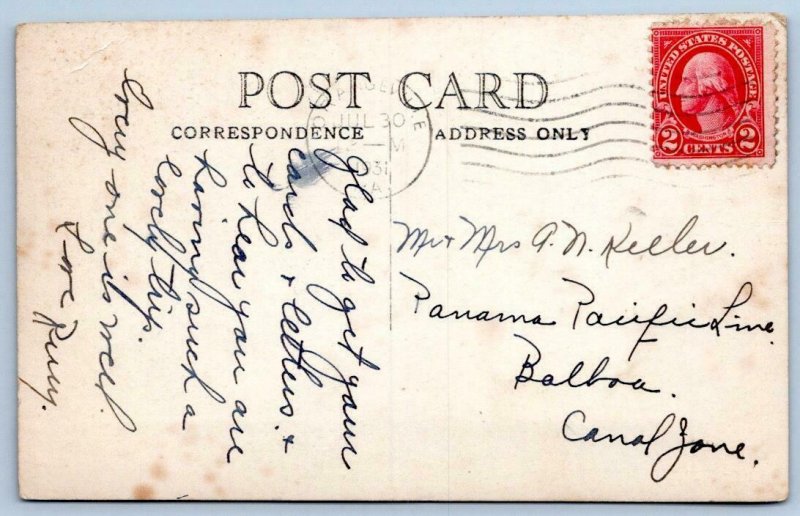 POST CARD
CORRESPONDENCE
ADDRESS ONLY
JUL 30
M
1931
UNITED STATES POSTAGE
WASHINGTON
2 CENTS 2
Glad to get your
cards & letters. &
to hear you are
having such a
lovely trip.
Every one is well.
Love
Mr & Mrs A. N. Keeler.
Panama Pacific Line.
Balboa.
Canal Zone.